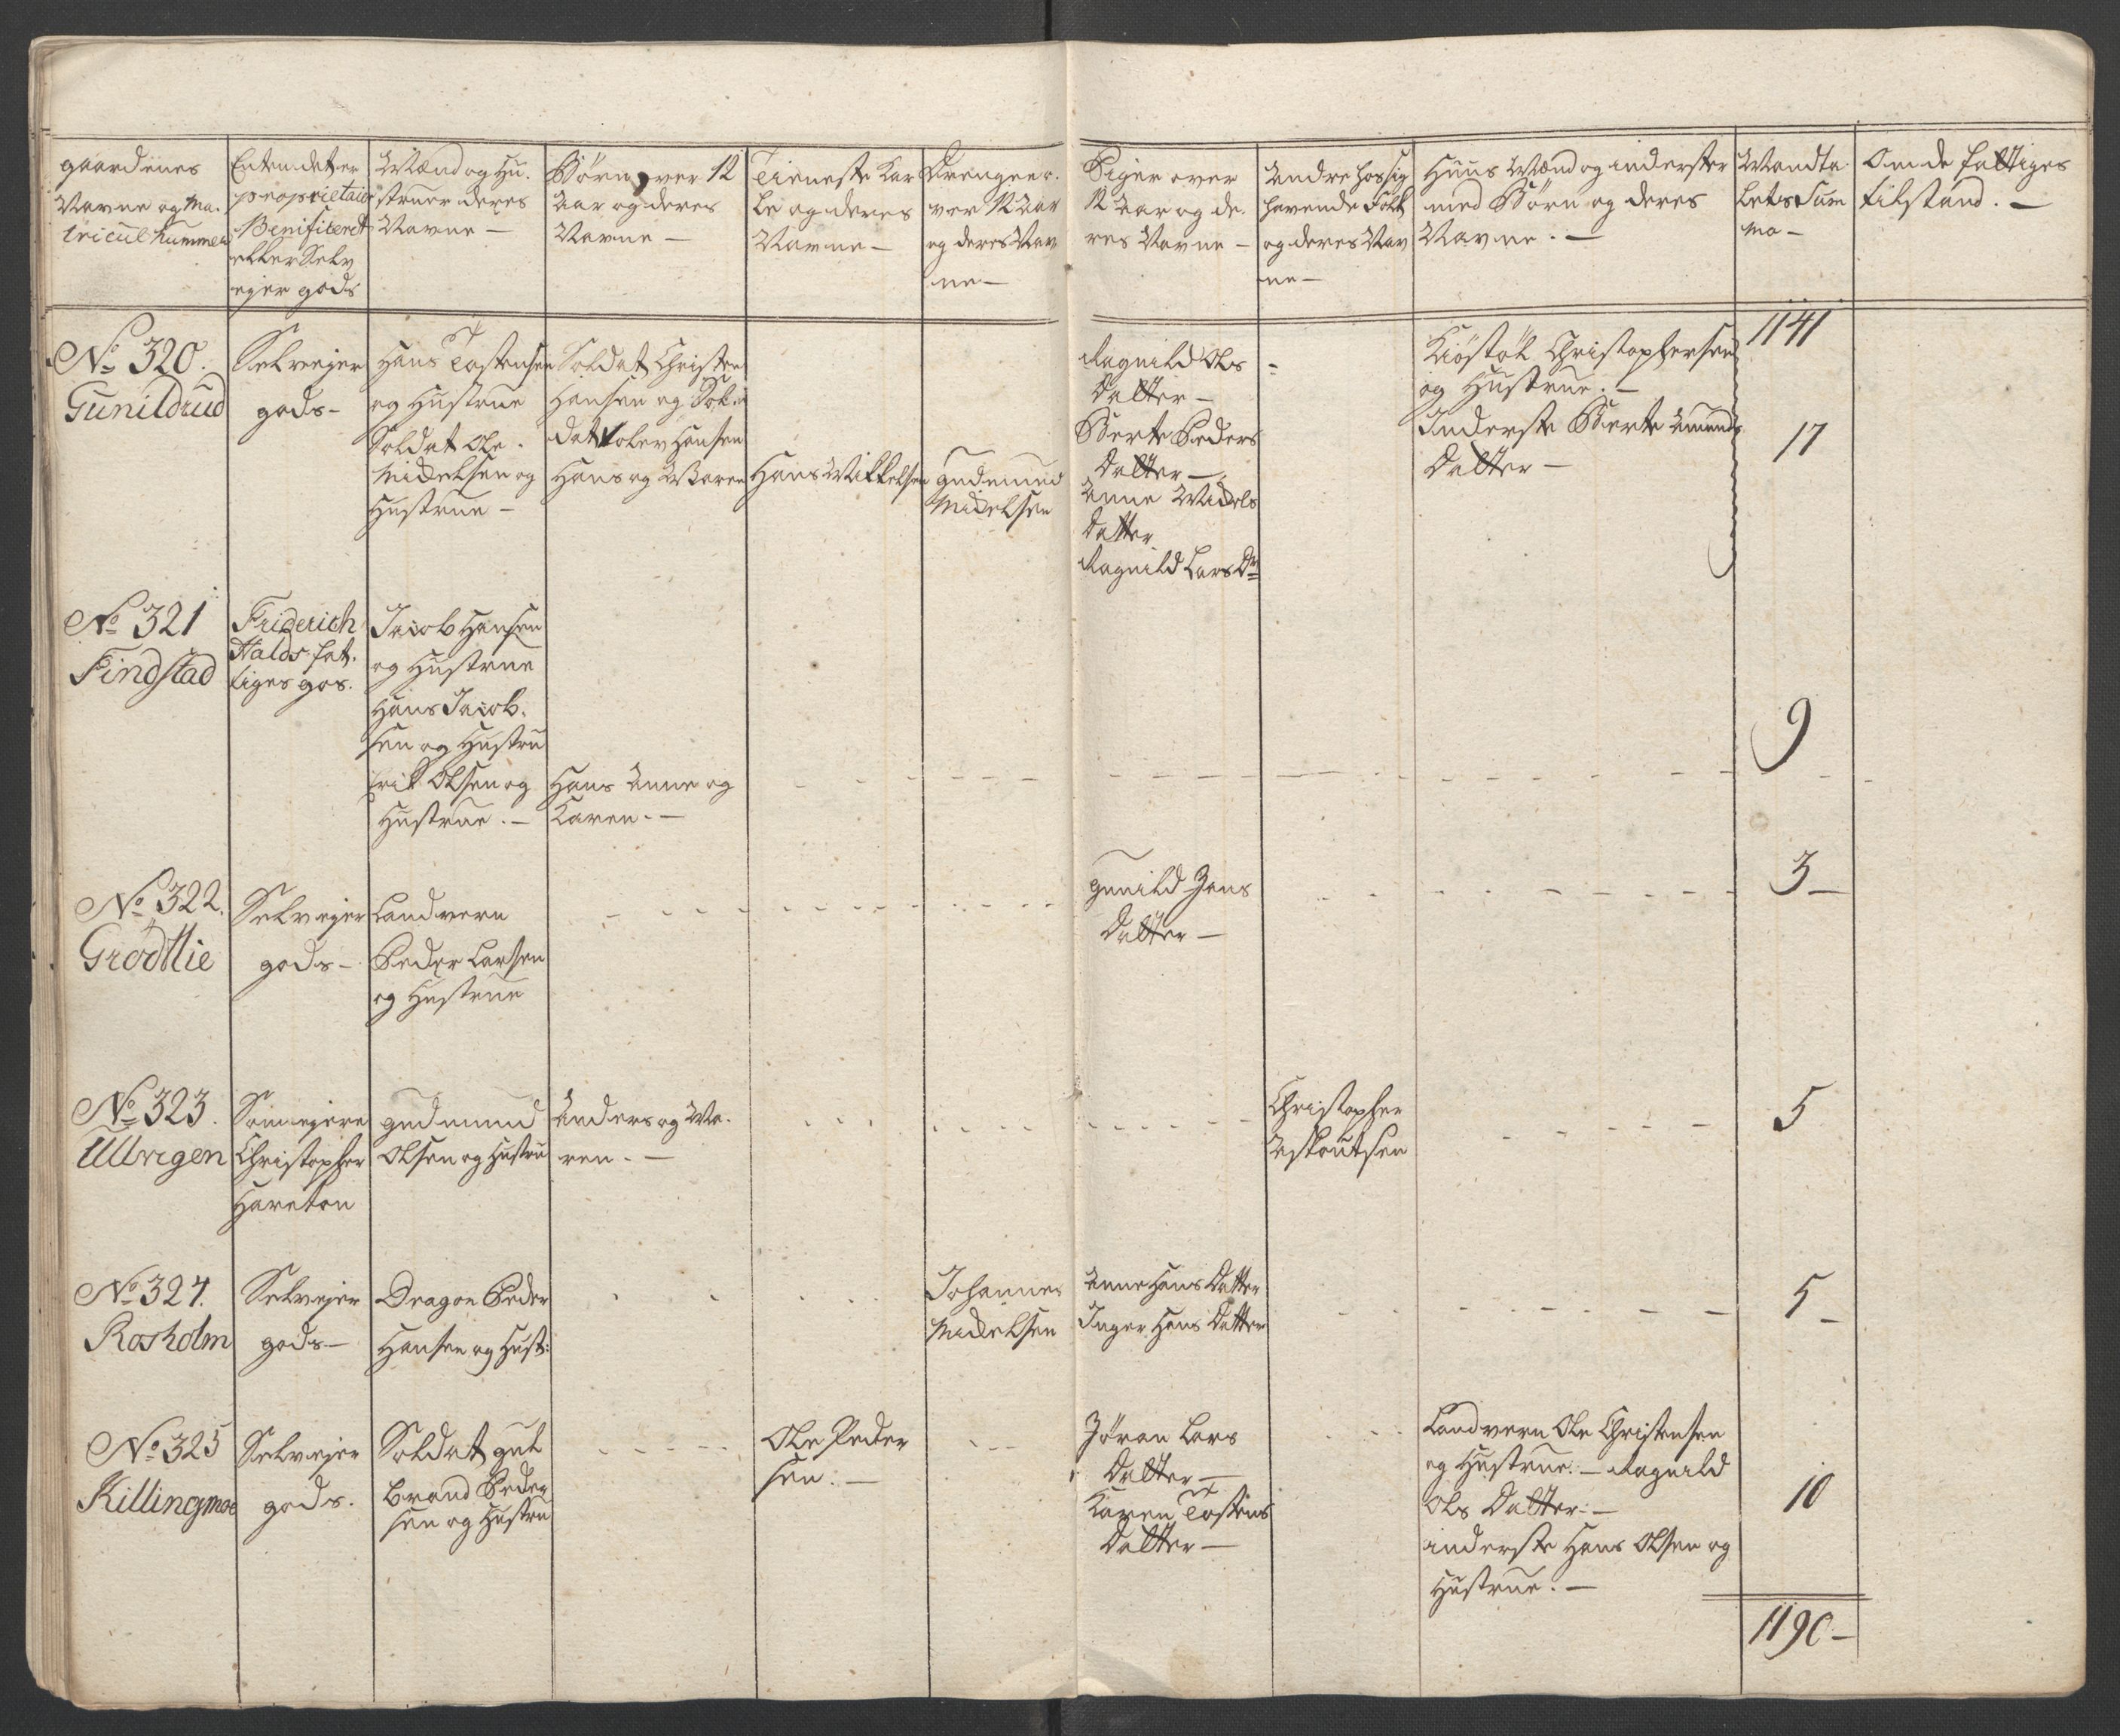 gaardenes
Navne og Ma-
tricul Nummer
Enten det er
proprietair
Benificeret
eller Selv
ejer gods
Mænd og Hu-
struer deres
Navne —
Børn over 12
Aar og deres
Navne —
Tieneste Kar
le og deres
Navne —
Drenge o-
ver 12 Aar
og deres Nav
ne —
Piger over
12 Aar og de-
res Navne —
Andre hos sig
havende Folk
og deres Nav
ne —
Huus Mænd og inderster
med Børn og deres
Navne. —
Mandta
lets Sum
ma —
Om de fattiges
tilstand. —
1141
No 320.
Gunildrud
Selvejer
gods —
Hans Tostensen
og Hustrue
Soldat Ole
Mickelsen og
Hustrue —
Soldat Christen
Hansen og Sol-
dat Tolev Hansen
Hans og Maren
Hans Mikkelsen
Gudmund
Mickelsen
Ragnild Ols
Datter —
Berte Peders
Datter —
Anne Mickels
Datter
Ragnild Lars Dr
Kiøstøl Christophersen
og Hustrue. —
Inderste Berte Amunds
Datter —
17
No 321
Findstad
Friderich
Halds fat-
tiges gos.
Jacob Hansen
og Hustrue
Hans Jacob-
sen og Hustru
Erik Olsen og
Hustrue. —
Hans Anne og
Karen. —
9
No 322.
Grødtlie
Selvejer
gods —
Landvern
Peder Larsen
og Hustrue
Gunild Jens
Datter —
3 —
No 323.
Ullvigen
Som ejere
Christopher
Gudmund
Olsen og Hustru
Anders og Ma-
ren. —
Christopher
5
No 324.
Rosholm
Selvejer
gods —
Dragon Peder
Hansen og Hust:
Johannes
Mickelsen
Anne Hans Datter
Inger Hans Datter
5 —
No 325
Killingmoe
Selvejer
gods.
Soldat Gul
brand Peder
sen og Hustru
Ole Peder
sen. —
Jøran Lars
Datter —
Karen Tostens
Datter —
Landvern Ole Christensen
og Hustrue. — Ragnild
Ols Datter: —
inderste Hans Olsen og
Hustrue. —
10
1190 —